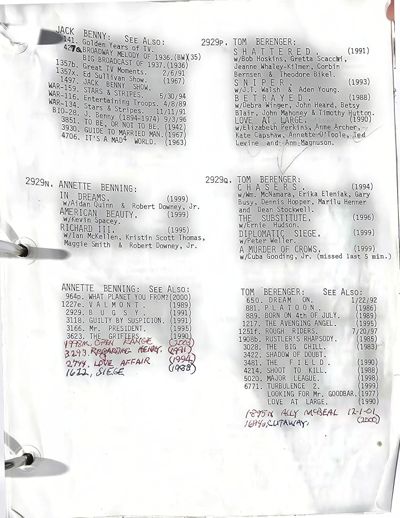 JACK BENNY: SEE ALSO:
141. Golden Years of TV.
427a BROADWAY MELODY OF 1936.(BW)(35)
BIG BROADCAST OF 1937.(1936)
1357b. Great TV Moments. 2/6/91
1357x. Ed Sullivan Show.
1497. JACK BENNY SHOW. (1967)
WAR-159. STARS & STRIPES.
WAR-116. Entertaining Troops. 4/8/89
WAR-134. Stars & Stripes.
BIO-28. J. Benny (1894-1974) 9/3/96
3851. TO BE, OR NOT TO BE. (1942)
3930. GUIDE TO MARRIED MAN.(1967)
4706. IT'S A MAD⁴ WORLD. (1963)
2929N. ANNETTE BENNING:
IN DREAMS. (1999)
w/Aidan Quinn & Robert Downey, Jr.
AMERICAN BEAUTY. (1999)
w/Kevin Spacey.
RICHARD III. (1995)
w/Ian McKellen, Kristin Scott Thomas,
Maggie Smith & Robert Downey, Jr.
ANNETTE BENNING: SEE ALSO:
964o. WHAT PLANET YOU FROM?(2000)
1227e. V A L M O N T. (1989)
2929. B U G S Y. (1991)
3118. GUILTY BY SUSPICION. (1991)
3166. Mr. PRESIDENT. (1995)
3623. THE GRIFTERS. (1990)
1998m. OPEN RANGE (2003)
3293. REGARDING HENRY. (1991)
2749. LOVE AFFAIR (1994)
1622. SIEGE (1988)
2929P. TOM BERENGER:
S H A T T E R E D. (1991)
w/Bob Hoskins, Greta Scacchi,
Jeanne Whaley-Kilmer, Corbin
Bernsen & Theodore Bikel.
S N I P E R. (1993)
w/J.T. Walsh & Aden Young.
B E T R A Y E D. (1988)
w/Debra Winger, John Heard, Betsy
Blair, John Mahoney & Timothy Hutton.
LOVE AT LARGE. (1990)
w/Elizabeth Perkins, Anne Archer,
Kate Capshaw, Annette O'Toole, Ted
Levine and Ann Magnuson.
2929Q. TOM BERENGER:
C H A S E R S. (1994)
w/Wm. McNamara, Erika Eleniak, Gary
Busey, Dennis Hopper, Marilu Henner
and Dean Stockwell.
THE SUBSTITUTE. (1996)
w/Ernie Hudson.
DIPLOMATIC SIEGE. (1999)
w/Peter Weller.
A MURDER OF CROWS. (1999)
w/Cuba Gooding, Jr. (missed last 5 min.)
TOM BERENGER: SEE ALSO:
650. DREAM ON. 1/22/92
881. P L A T O O N. (1986)
889. BORN ON 4th OF JULY. (1989)
1217. THE AVENGING ANGEL. (1995)
1251f. ROUGH RIDERS. 7/20/97
1908b. RUSTLER'S RHAPSODY. (1985)
3028. THE BIG CHILL. (1983)
3422. SHADOW OF DOUBT.
3481. T H E F I E L D. (1990)
4214. SHOOT TO KILL. (1988)
5020. MAJOR LEAGUE. (1998)
6771. TURBULENCE 2. (1999)
LOOKING FOR Mr. GOODBAR.(1977)
LOVE AT LARGE. (1990)
1895N ALLY McBEAL 12-1-01
CUTAWAY. (2000)